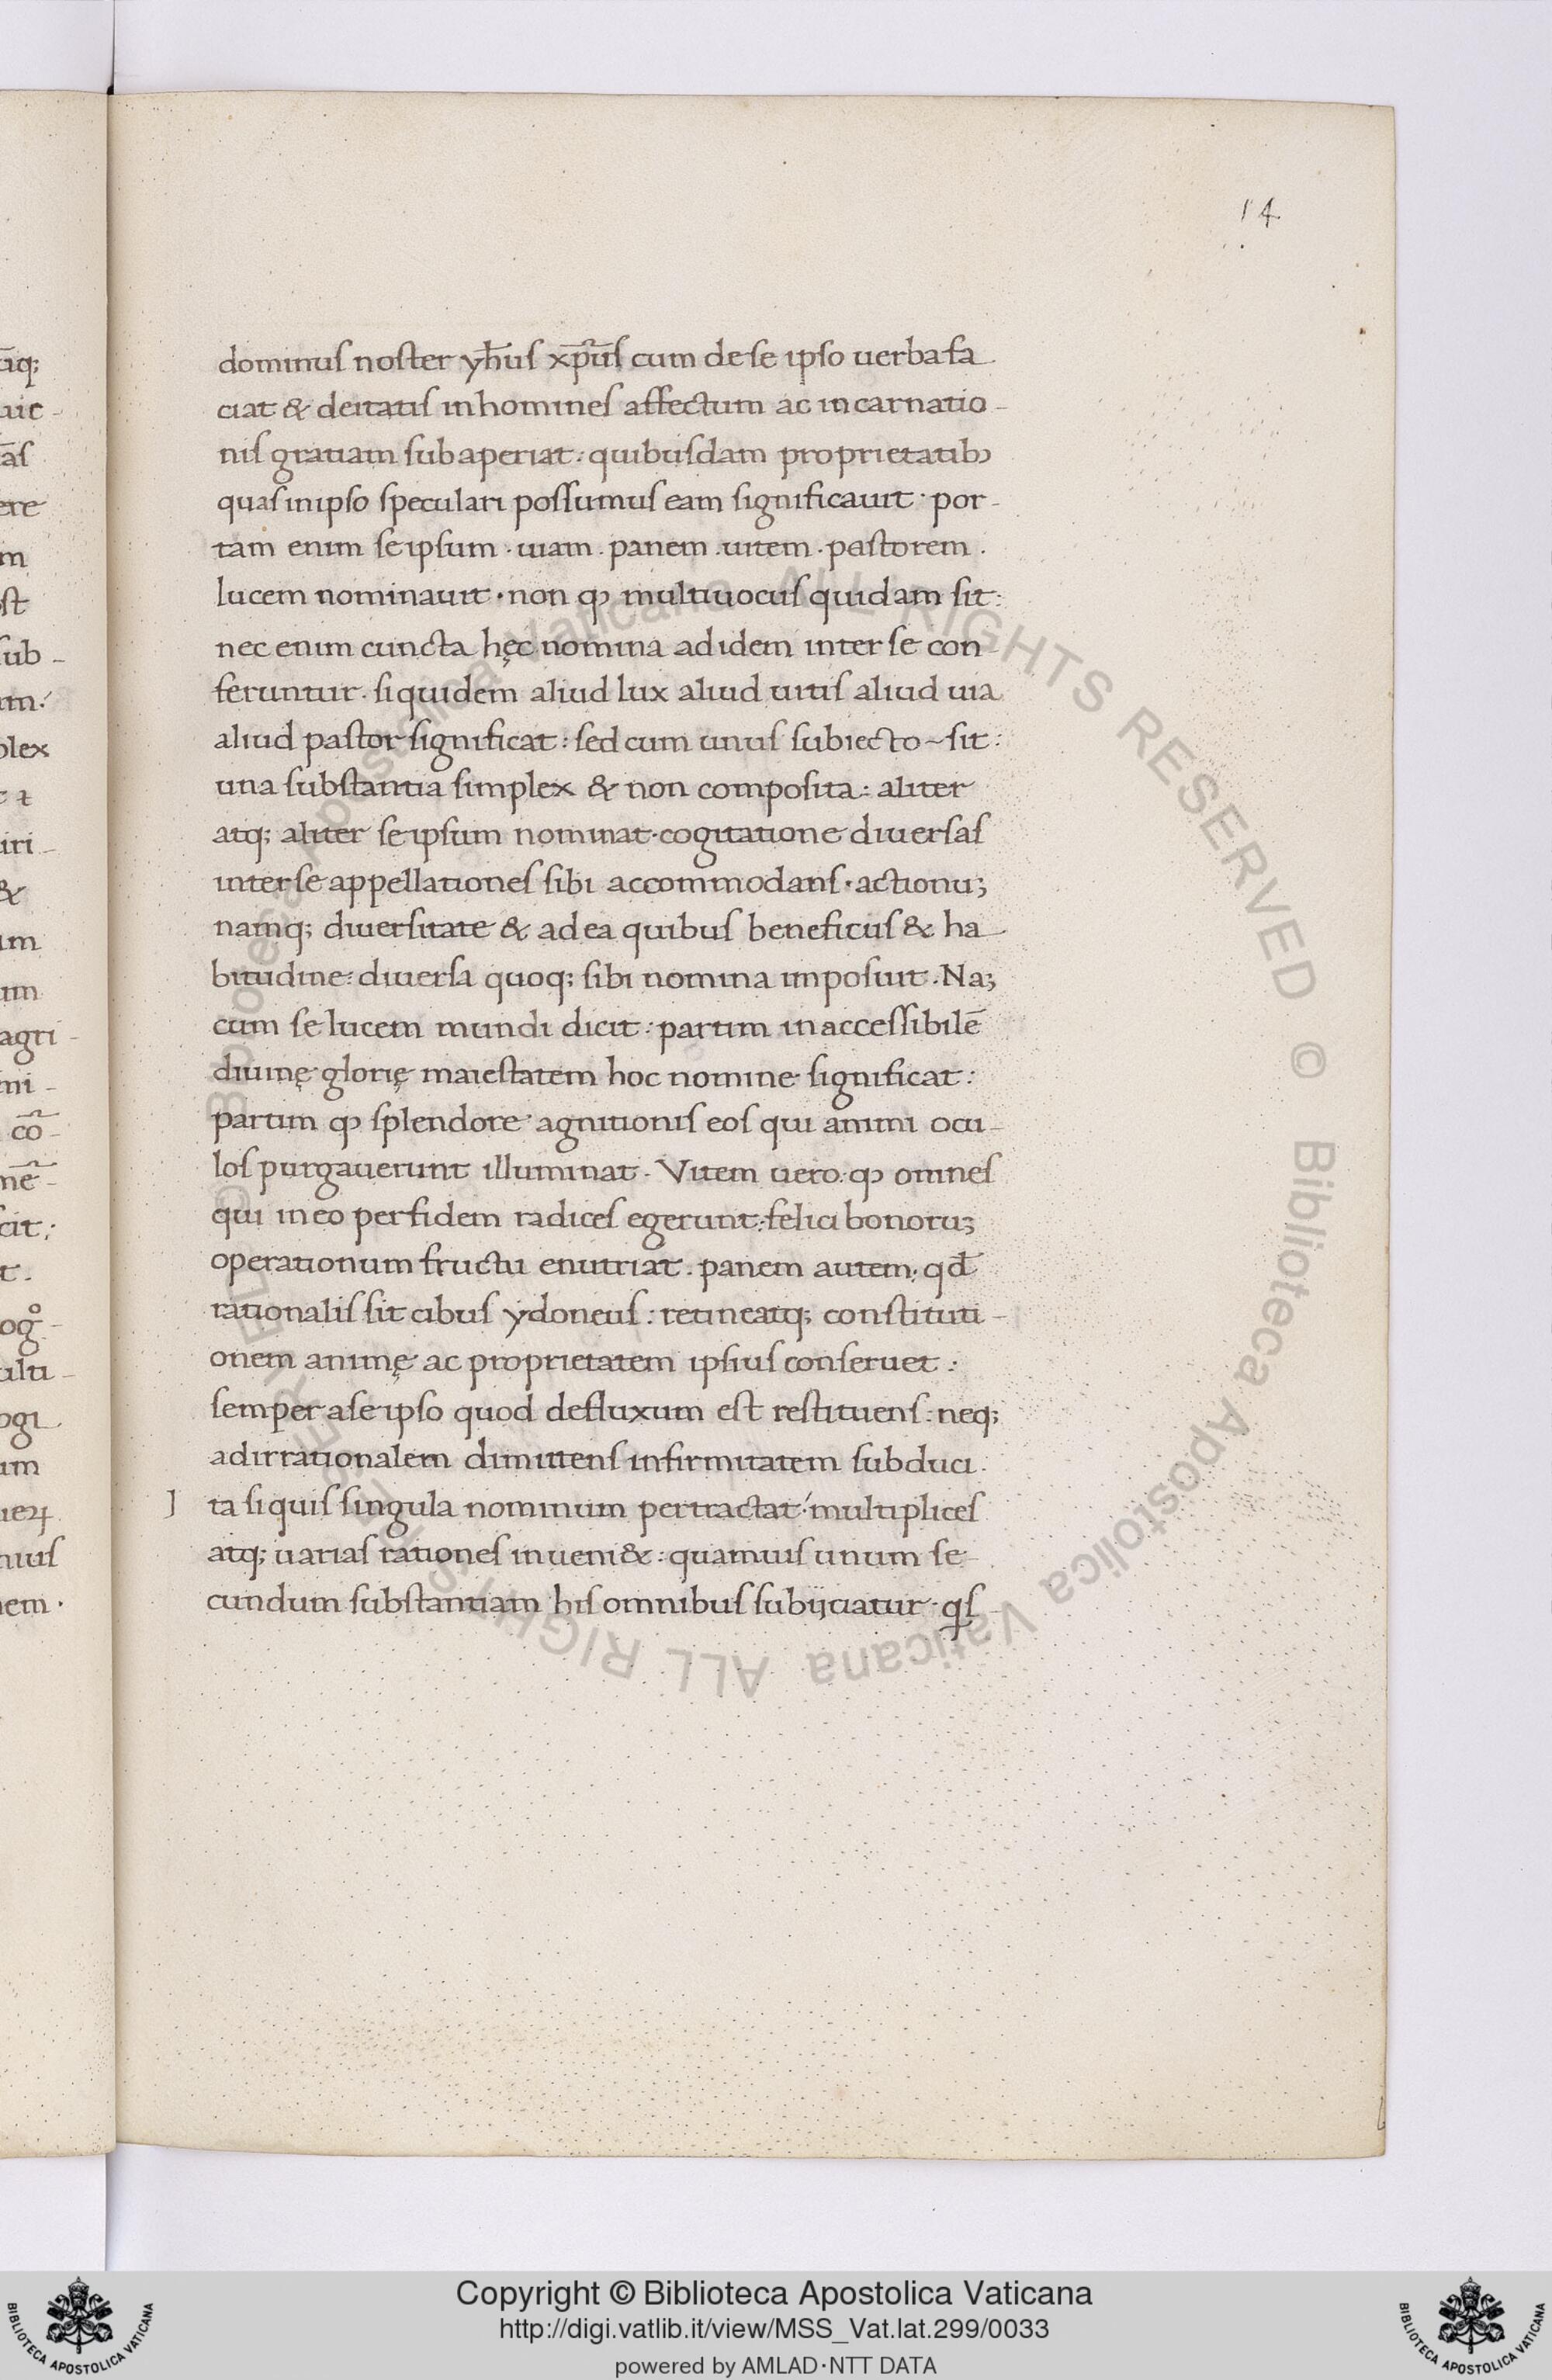 14
dominus noster yh̄us xp̄us cum de se ipso uerba fa
ciat & deitatis in homines affectum ac incarnatio-
nis gratiam subaperiat: quibusdam proprietatibꝫ
quas in ipso speculari possumus eam significauit· por-
tam enim se ipsum· uiam. panem. uitem. pastorem.
lucem nominauit· non ꝙ multiuocus quidam sit:
nec enim cuncta hęc nomina ad idem inter se con-
feruntur. siquidem aliud lux aliud uitis aliud uia
aliud pastor significat: sed cum unus subiecto~sit:
una substantia simplex & non composita: aliter
atq; aliter se ipsum nominat· cogitatione diuersas
inter se appellationes sibi accommodans· actionuꝫ
namq; diuersitate & ad ea quibus beneficus & ha-
bitudine: diuersa quoq; sibi nomina imposuit. Naꝫ
cum se lucem mundi dicit: partim inaccessibilē
diuinę glorię maiestatem hoc nomine significat:
partim ꝙ splendore agnitionis eos qui animi ocu-
los purgauerunt illuminat. Vitem uero: ꝙ omnes
qui in eo per fidem radices egerunt: felici bonoruꝫ
operationum fructu enutriat. panem autem: qd̄
rationalis sit cibus ydoneus: retineatq; constituti-
onem animę ac proprietatem ipsius conseruet:
semper a se ipso quod defluxum est restituens: neq;
ad irrationalem dimittens infirmitatem subduci.
I ta si quis singula nominum pertractat: multiplices
atq; uarias rationes inueni&: quamuis unum se-
cundum substantiam his omnibus subijciatur· qs
āq;
aic-
ās
ere
m
st
sub-
um:
plex
iri-
&
um
um
agri-
mi-
cō-
mē-
cit:
t.
ulti-
ogi
um
uis
nem.
© Biblioteca Apostolica Vaticana ALL RIGHTS RESERVED © Biblioteca Apostolica Vaticana ALL RIGHTS RESERVED
Copyright © Biblioteca Apostolica Vaticana
http://digi.vatlib.it/view/MSS_Vat.lat.299/0033
powered by AMLAD·NTT DATA
BIBLIOTECA APOSTOLICA VATICANA
BIBLIOTECA APOSTOLICA VATICANA